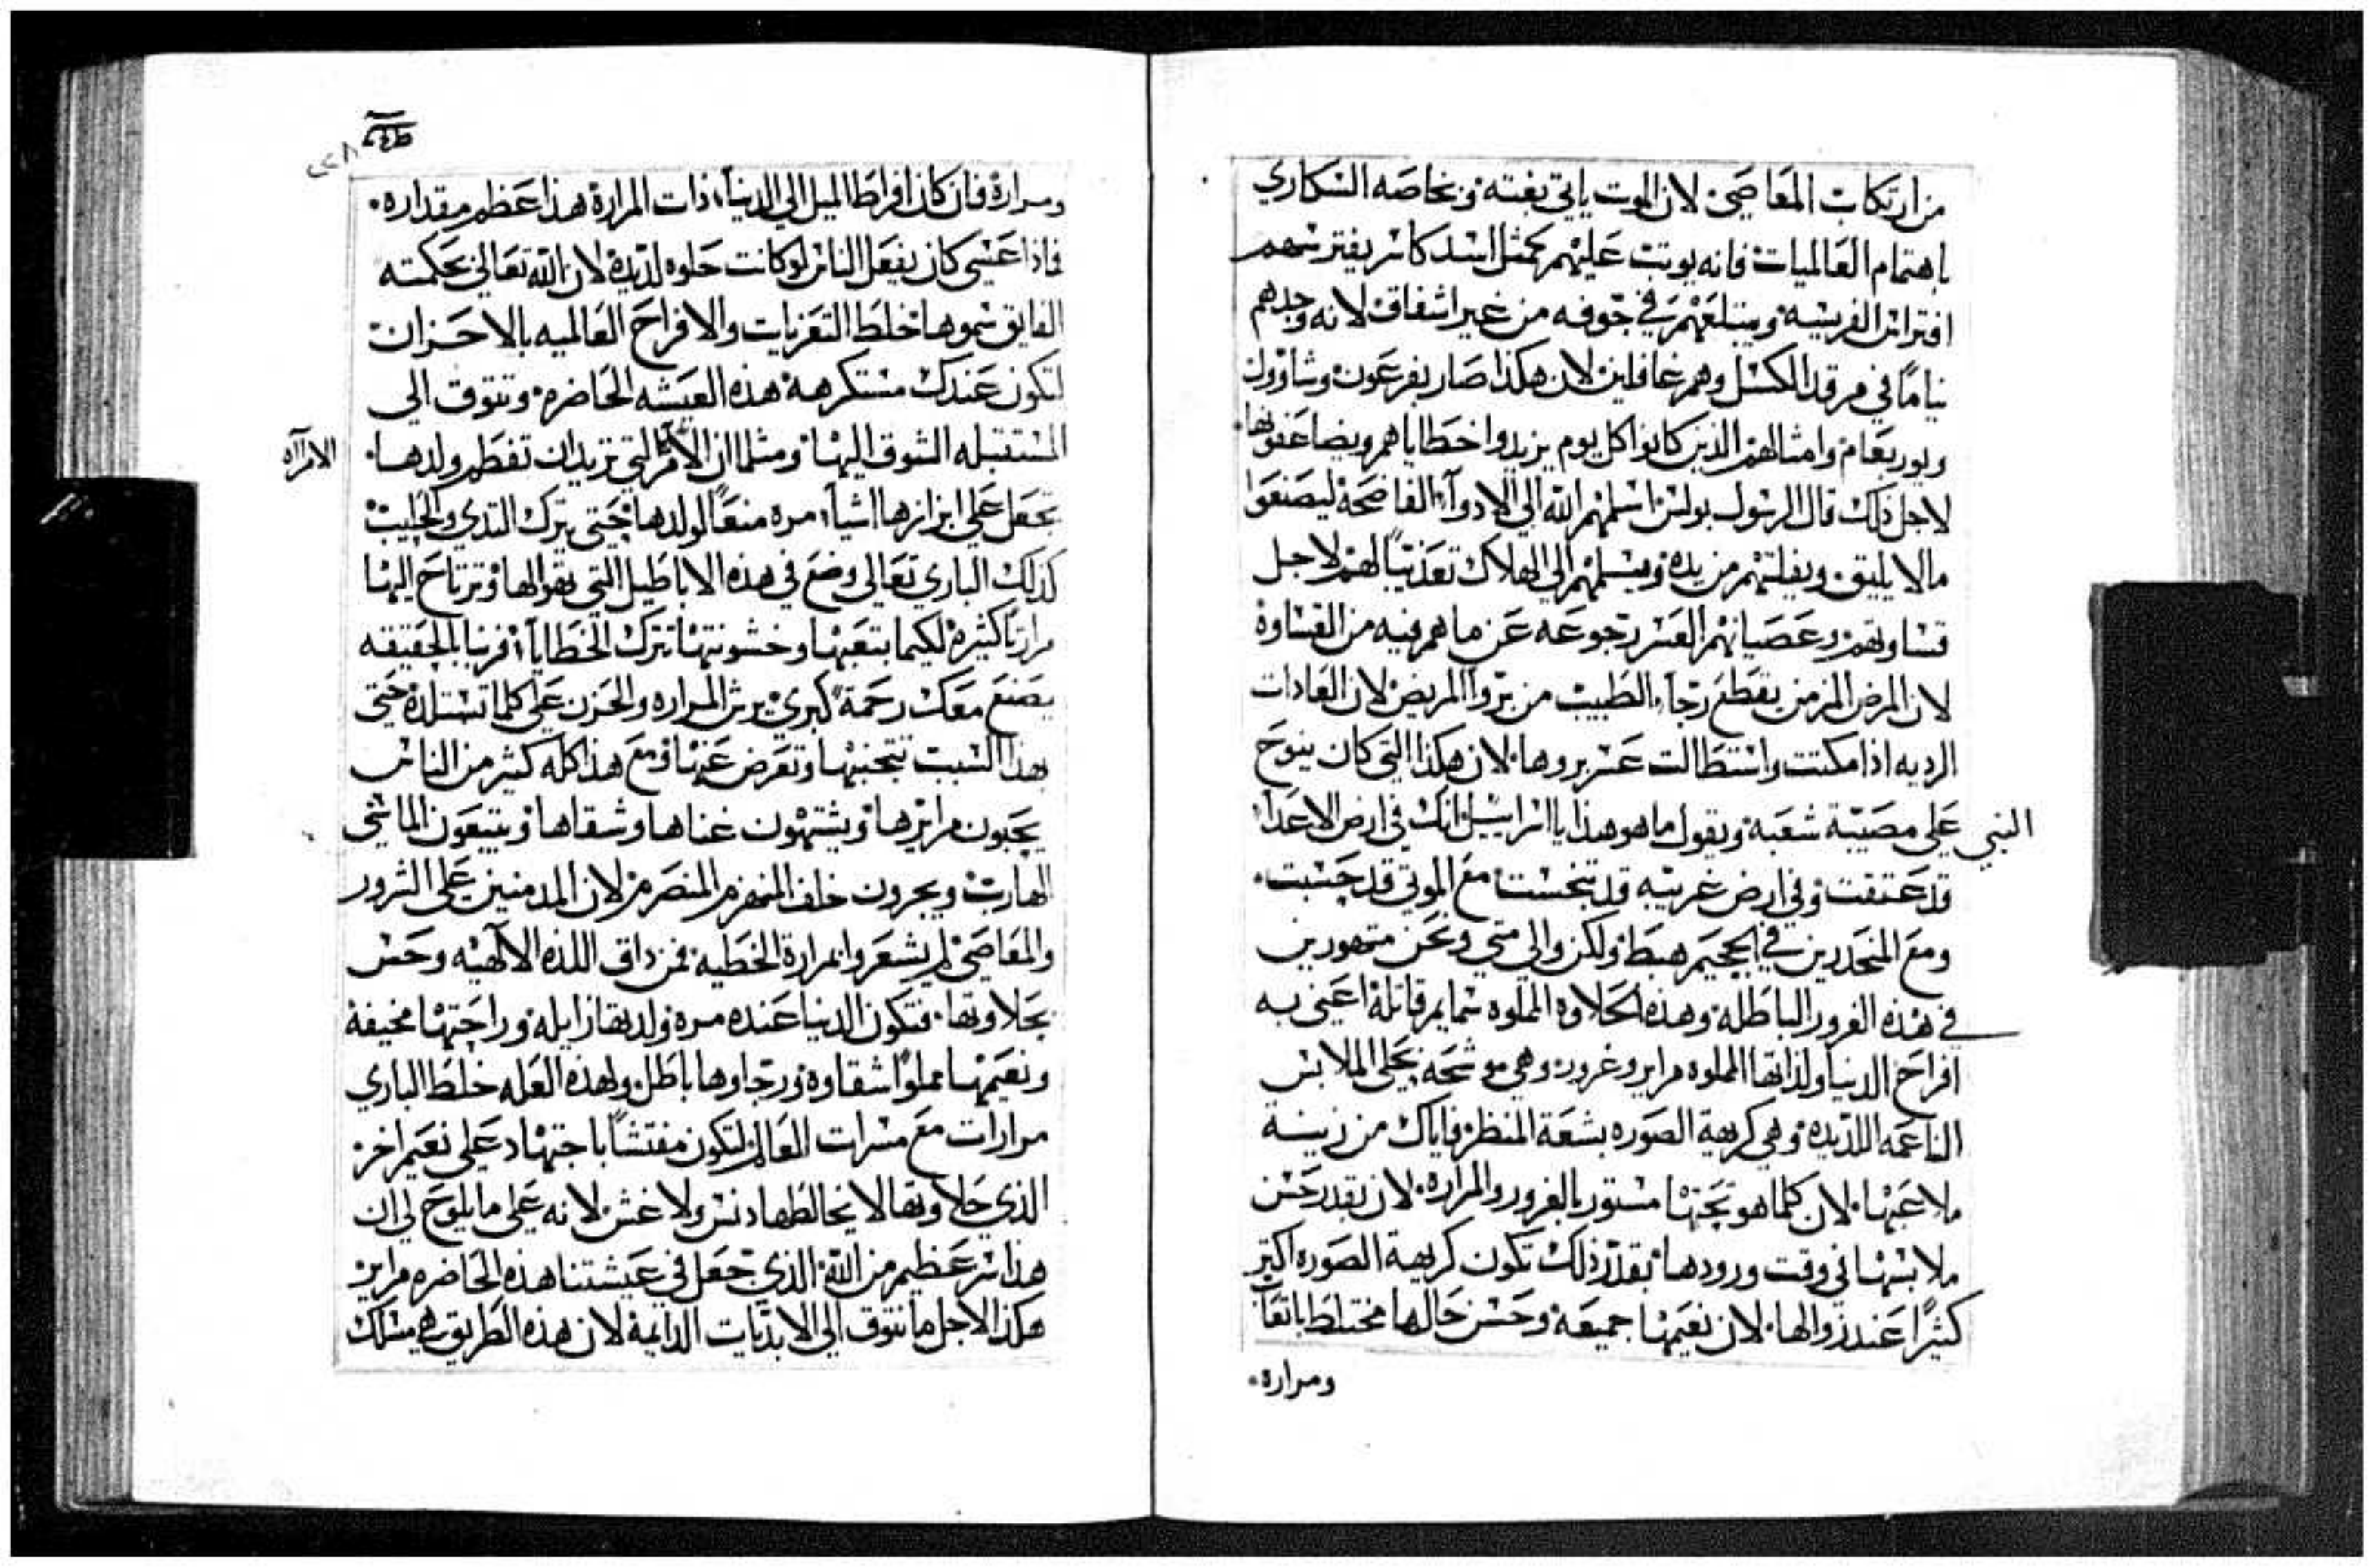 من ارتكاب المعاصي لان الموت ياتي بغتة وبخاصه السكاري
باهتمام العالميات فانه يوتب عليهم كمثل اسد كاسر يفترسهم
افتراس الفريسه ويبتلعهم في جوفه من غير اشفاق لانه وجدهم
نيامًا في مرقد الكسل وهم غافلين لان هكذا صار بفرعون وشاوول
ويوربعام وامثالهم الذين كانوا كل يوم يزيدوا خطاياهم ويضاعفونها٠
لاجل ذلك قال الرسول بولس اسلمهم الله الي الادوآء الفاضحة ليصنعوا
مالا يليق ويفلتهم من يده ويسلمهم الي الهلاك تعذيبًا لهم لاجل
قساوتهم وعصيانهم العسر رجوعه عن ما هم فيه من القساوة
لان المرض المزمن يقطع رجاء الطبيب من بروا المريض لان العادات
الرديه اذا مكتت واستطالت عسر بروها٠ لان هكذا التي كان ينوح
النبي علي مصيبة شعبه ويقول ما هو هذا يا اسراييل انك في ارض الاعدآء
قد عتقت وفي ارض غريبه قد تنجست مع الموتي قد حسبت٠
ومع المنحدرين في الجحيم هبط ولكن والي متي ونحن متهورين
في هذه الغرور الباطله وهذه الحلاوه المملوه سمايم قاتلة اعني به
افراح الدنيا ولذاتها المملوه مراير وغرور وهي موشحه بحلي الملابس
الناعمه اللديده وهي كريهة الصوره بشعة المنظر فاياك من زينة
ملاعبها٠ لان كلما هو تحتها مستور بالغرور والمراره٠ لان بقدر حسن
ملابسها في وقت ورودها بقدر ذلك تكون كريهة الصوره اكتر
كثيرًا عند زوالها٠ لان نعيمها جميعه وحسن حالها مختلط باتعاب
ومرارة٠
٢٤٨
ومرارة فان كان افراط الميل الي الدنيا ذات المرارة هذا عظم مقداره٠
فماذا عسي كان يفعل الناس لو كانت حلوه لذيذة لان الله تعالي بحكمته
الفايق سموها خلط التعزيات والافراح العالميه بالاحزان
لتكون عندك مستكرهة هذه العيشه الحاضره وتتوق الي
المستقبله الشوق اليها ومثلما ان الامرآة التي تريد ان تفطم ولدها٠
الامرآاه
تجعل علي ابزازها اشياء مره منعًا لولدها حتي يترك التدي والحليب
كذلك الباري تعالي وضع في هذه الاباطيل التي تهوالها وترتاح اليها
مرارتًا كثيرة لكيما بتعبها وخشونتها تترك الخطايا فربنا بالحقيقه
يصنع معك رحمة كبري يرش المراره والحزن علي كلما تستلده حتي
بهذا السبب تتجنبها وتعرض عنها ومع هذا كله كثير من الناس
يحبون مرايرها ويشتهون عناها وشقاها ويتبعون الماشي
الهارب ويجرون خلف المنهزم المنصرم لان المدمنين علي الشرور
والمعاصي لم يشعروا بمرارة الخطيه فمن داق اللذه الالآهيه وحس
بحلاوتها٠ فتكون الدنيا عنده مره ولديتها زايله وراحتها مخيفة
ونعيمها مملوًا شقاوه ورجاوها باطل ولهذه العله خلط الباري
مرارات مع مسرات العالم لتكون مفتشًا باجتهاد علي نعيم اخر
الذي حلاوتها لا يخالطها دنس ولا غش لانه علي ما يلوح لي ان
هذا سر عظيم من الله الذي جعل في عيشتنا هذه الحاضره مراير
هكذا لاجل ما نتوق الي الابديات الدايمة لان هذه الطريق هي مسلك